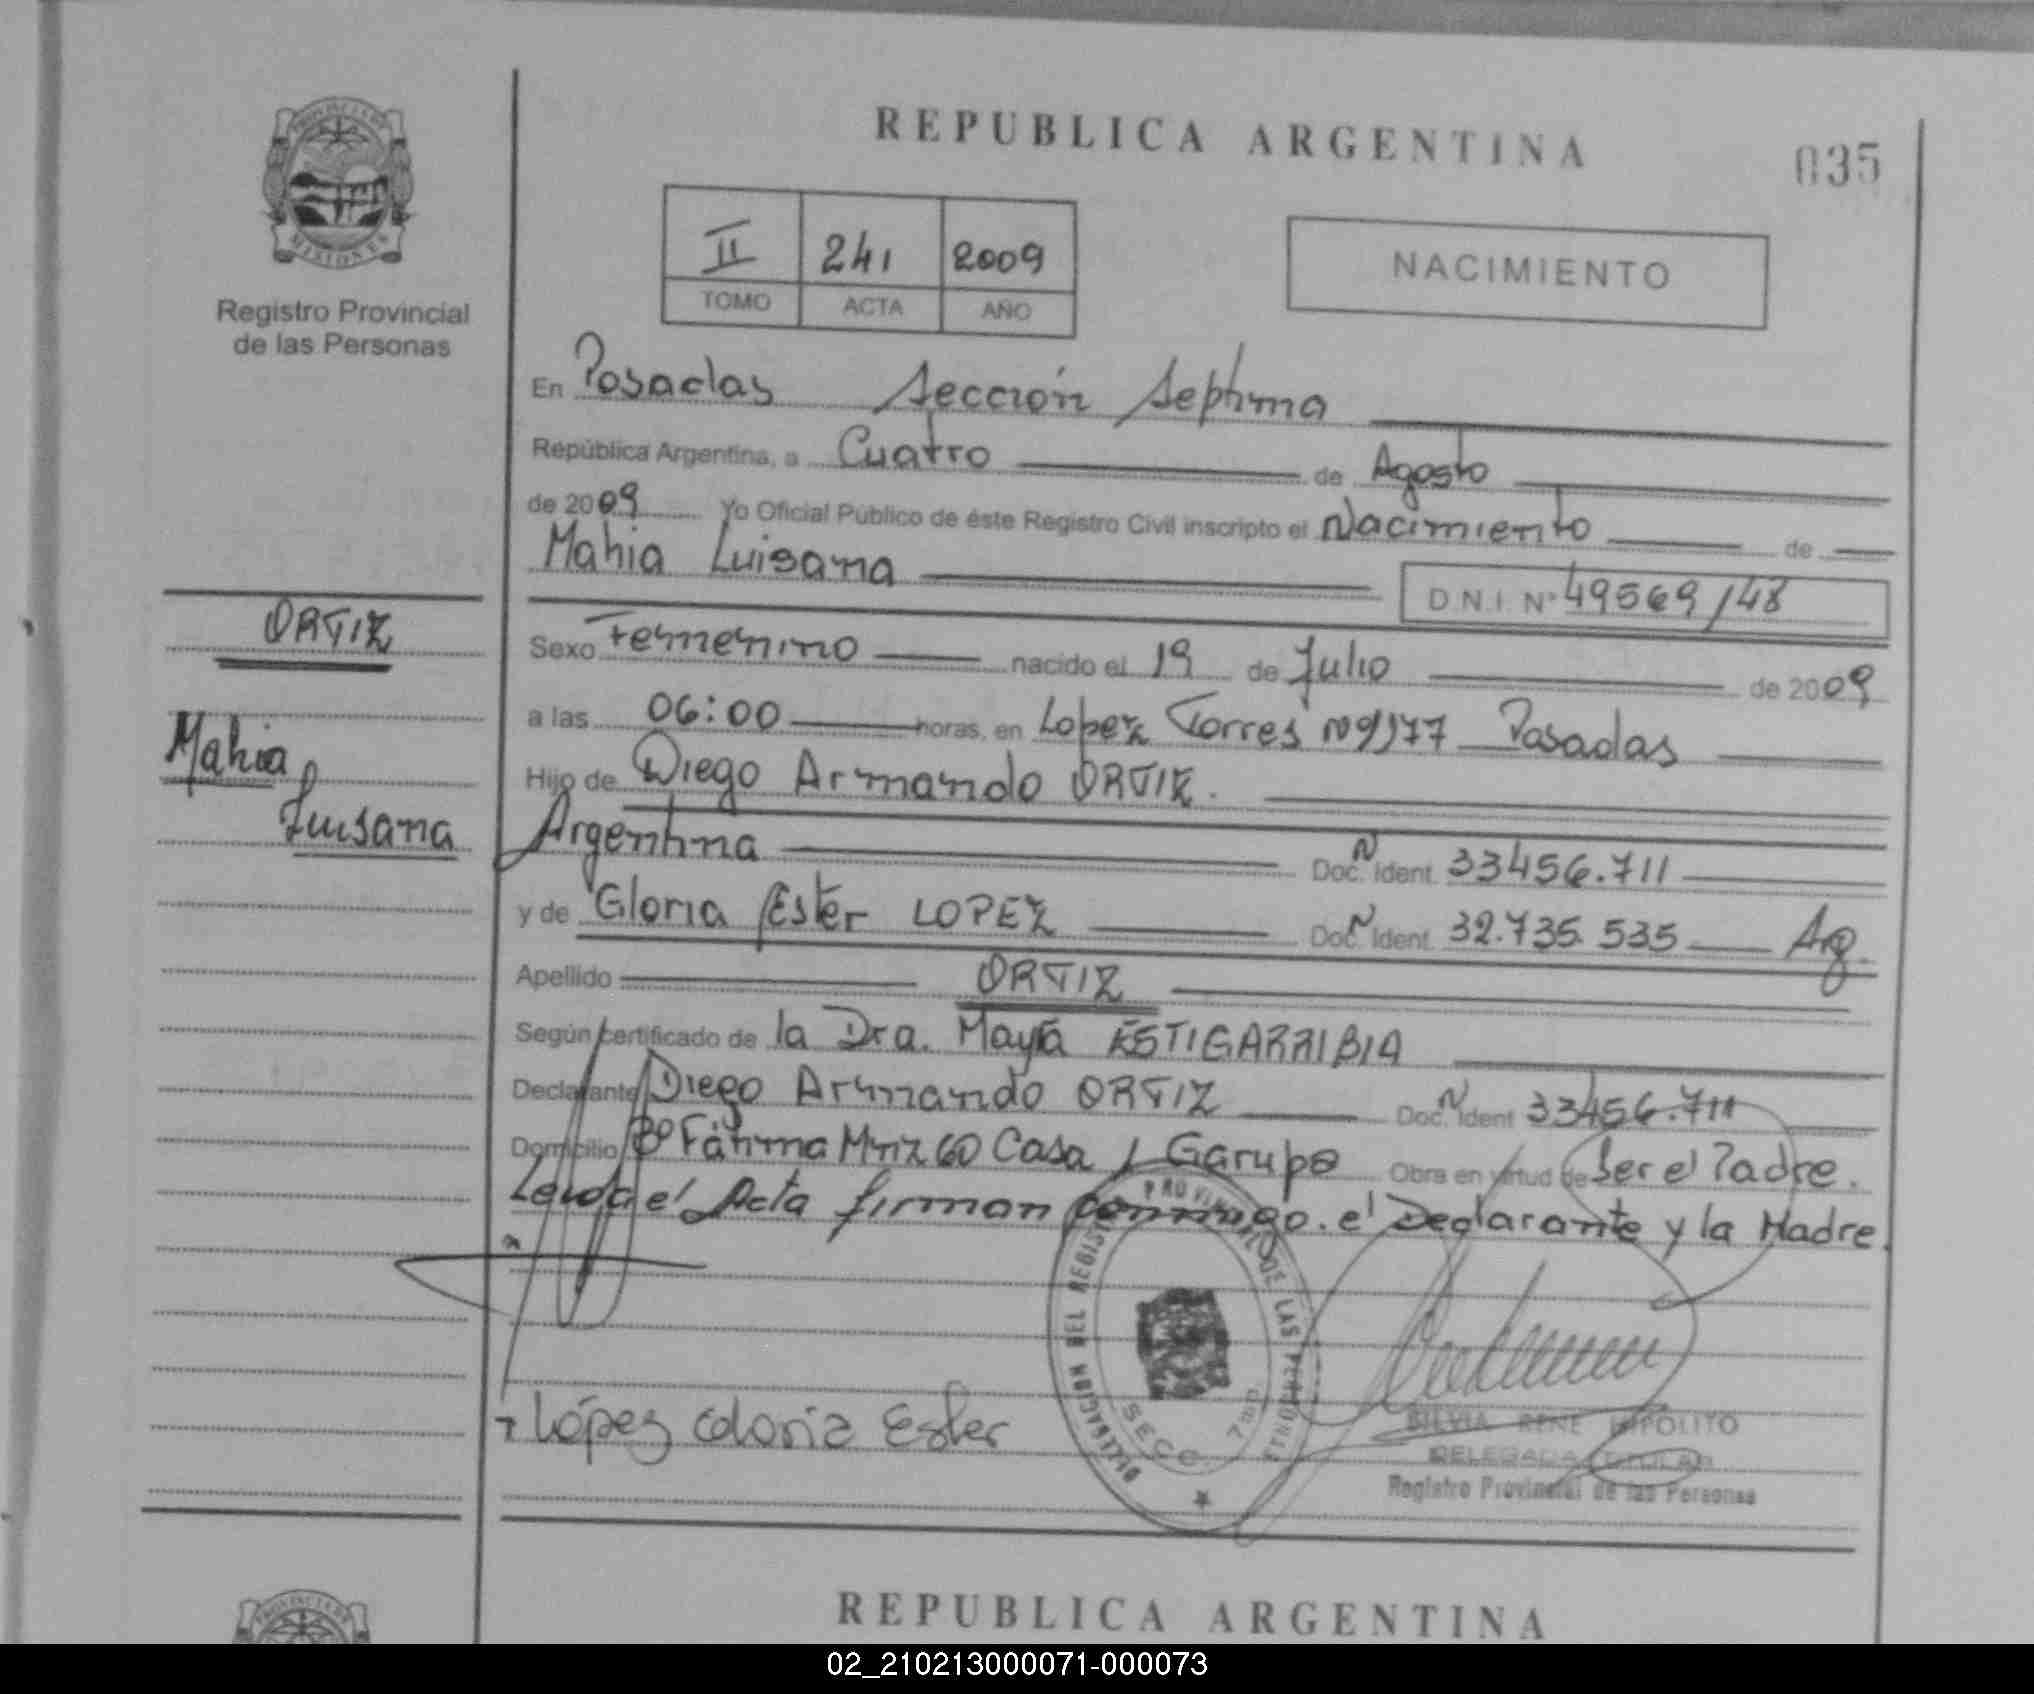 REPUBLICA ARGENTINA
035
PROVINCIA DE
MISIONES
Registro Provincial
de las Personas
II 241 2009
TOMO ACTA AÑO
NACIMIENTO
En Posadas Sección Septima
República Argentina, a Cuatro de Agosto
de 2009 Yo Oficial Público de éste Registro Civil inscripto el Nacimiento de
Mahia Luisana D.N.I. Nº 49569148
ORTIZ
Mahia
Luisana
Sexo Femenino nacido el 19 de Julio de 2009
a las 06:00 horas, en Lopez Torres Nº1177 Posadas
Hijo de Diego Armando ORTIZ.
Argentina Doc. Ident. 33456.711
y de Gloria Ester LOPEZ Doc. Ident. 32.735.535 Arg.
Apellido ORTIZ
Según certificado de la Dra. Mayra ESTIGARRIBIA
Declarante Diego Armando ORTIZ Doc. Ident 33456.711
Domicilio Bº Fátima Mnz 60 Casa 1 Garupa Obra en virtud de Ser el Padre.
Leída el Acta firman conmigo. el Declarante y la Madre.
López Gloria Ester
SECC. 7ma.
SILVIA RENE HIPOLITO
DELEGADA TITULAR
Registro Provincial de las Personas
REPUBLICA ARGENTINA
02_210213000071-000073